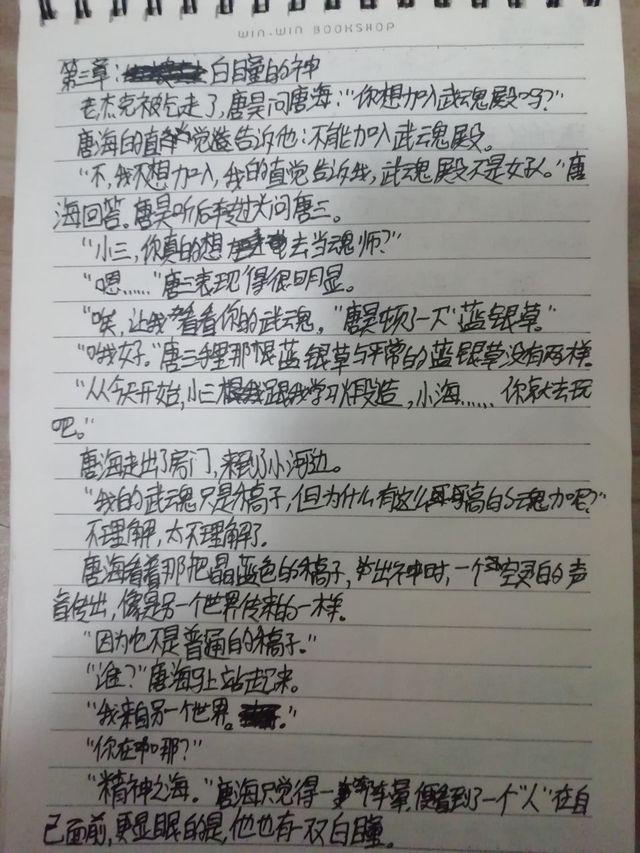 WIN-WIN BOOKSHOP
第三章: 白瞳的神
老杰克被气走了,唐昊问唐海:"你想加入武魂殿吗?"
唐海的直觉告诉他:不能加入武魂殿。
"不,我不想加入,我的直觉告诉我,武魂殿不是好人。"唐
海回答。唐昊听后转过头问唐三。
"小三,你真的想去当魂师?"
"嗯……"唐三表现得很明显。
"唉,让我看看你的武魂,"唐昊顿了一下"蓝银草。"
"哦好。"唐三手里那根蓝银草与平常的蓝银草没有两样。
"从今天开始,小三跟我学习锻造,小海……你就去玩
吧。"
唐海走出了房门,来到了小河边。
"我的武魂只是稿子,但为什么有这么高的魂力呢?"
不理解,太不理解了。
唐海看着那把晶蓝色的稿子,出神时,一个空灵的声
音传出,像是另一个世界传来的一样。
"因为它不是普通的稿子。"
"谁?"唐海马上站起来。
"我来自另一个世界。"
"你在哪?"
"精神之海。"唐海只觉得一阵晕,便看到了一个"人"在自
己面前,更显眼的是,他也有一双白瞳。